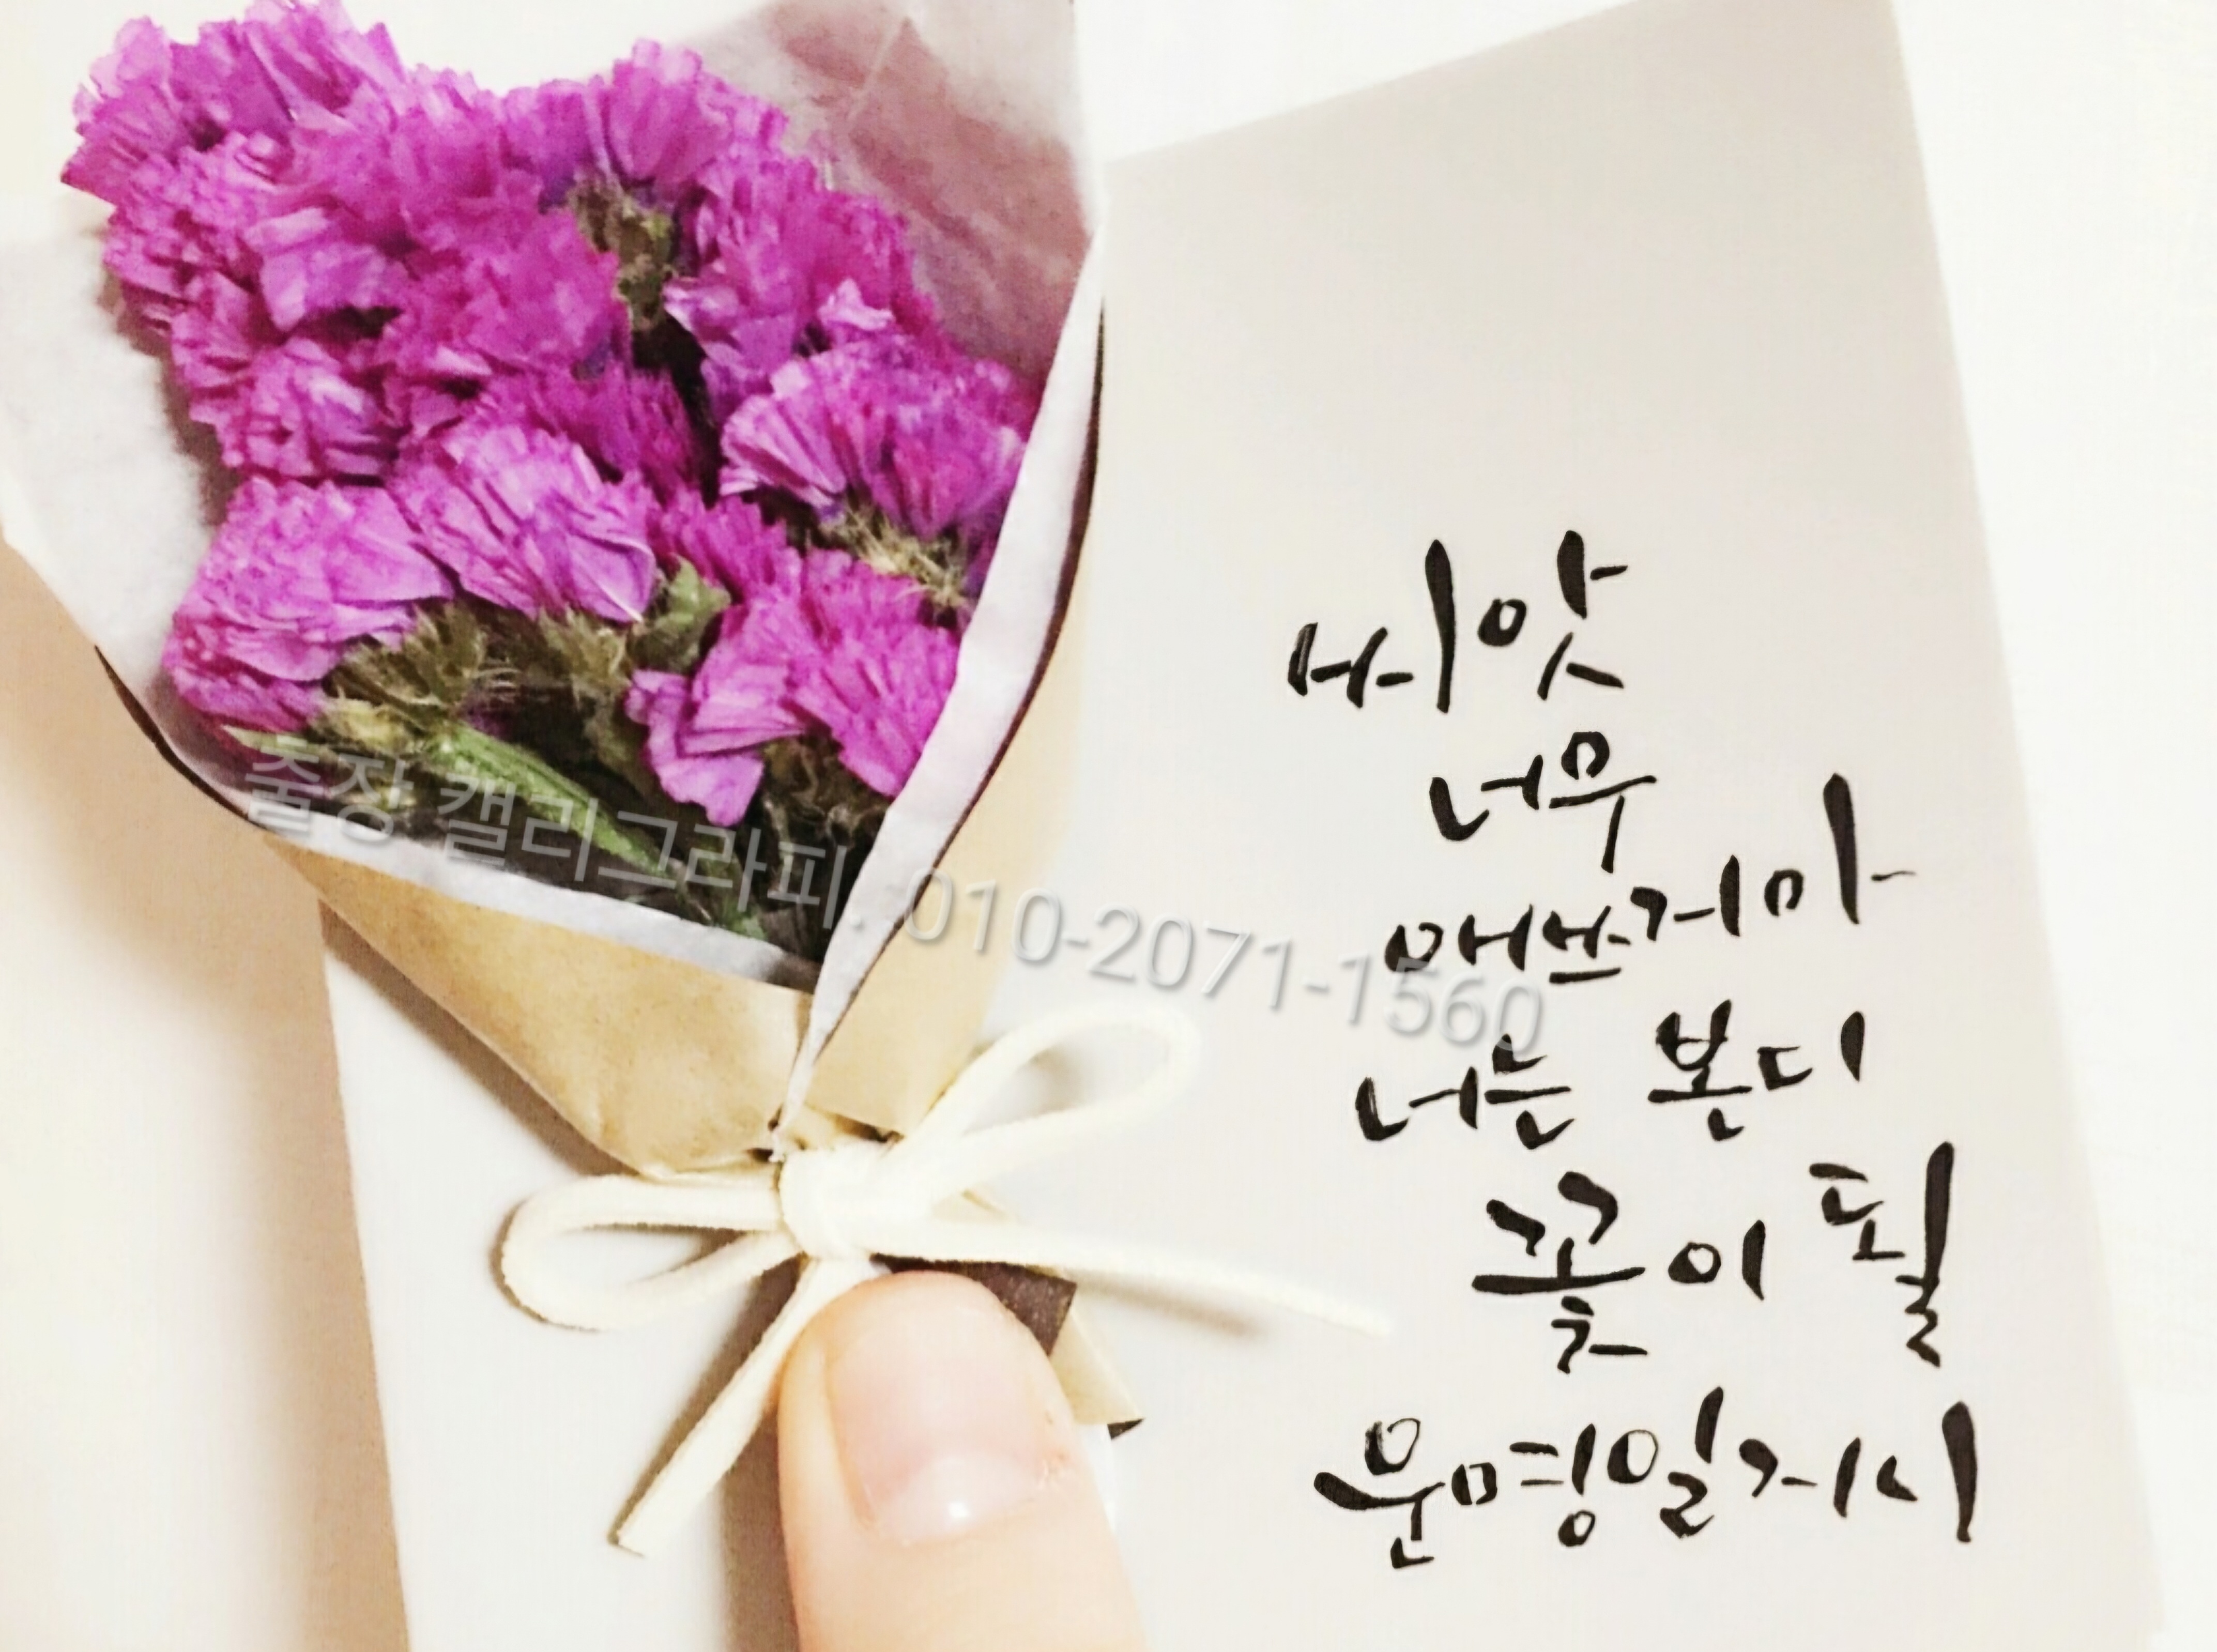 씨앗
너무
애쓰지마
너는 본디
꽃이 필
운명일지니
출장 캘리그라피. :010-2071-1560